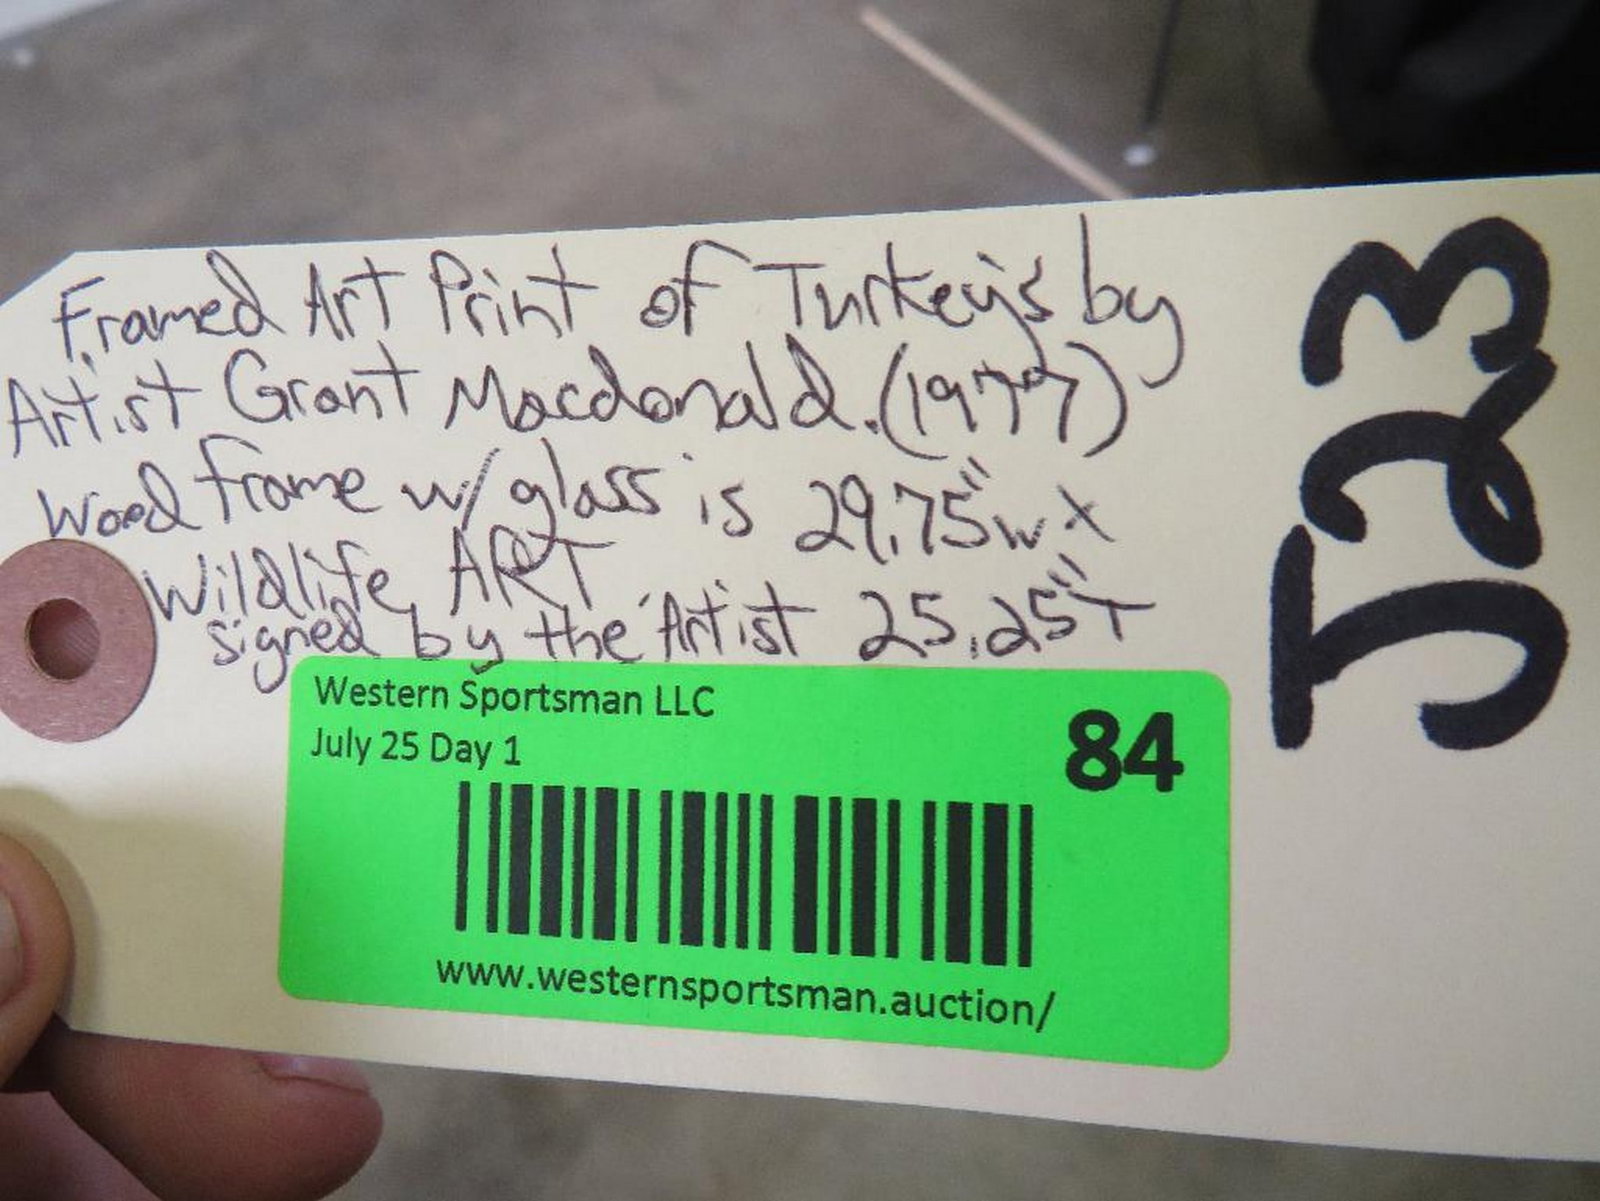 Framed Art Print of Turkey's by
Artist Grant Macdonald. (1977)
Wood frame w/ glass is 29.75" w x
Wildlife ART
signed by the Artist 25.25" T
J23
Western Sportsman LLC
July 25 Day 1
84
www.westernsportsman.auction/